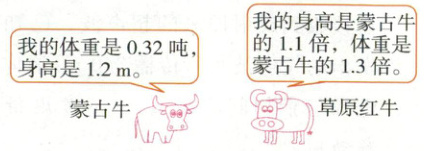 我的体重是 0.32 吨，
身高是 1.2 m。
蒙古牛
我的身高是蒙古牛
的 1.1 倍，体重是
蒙古牛的 1.3 倍。
草原红牛